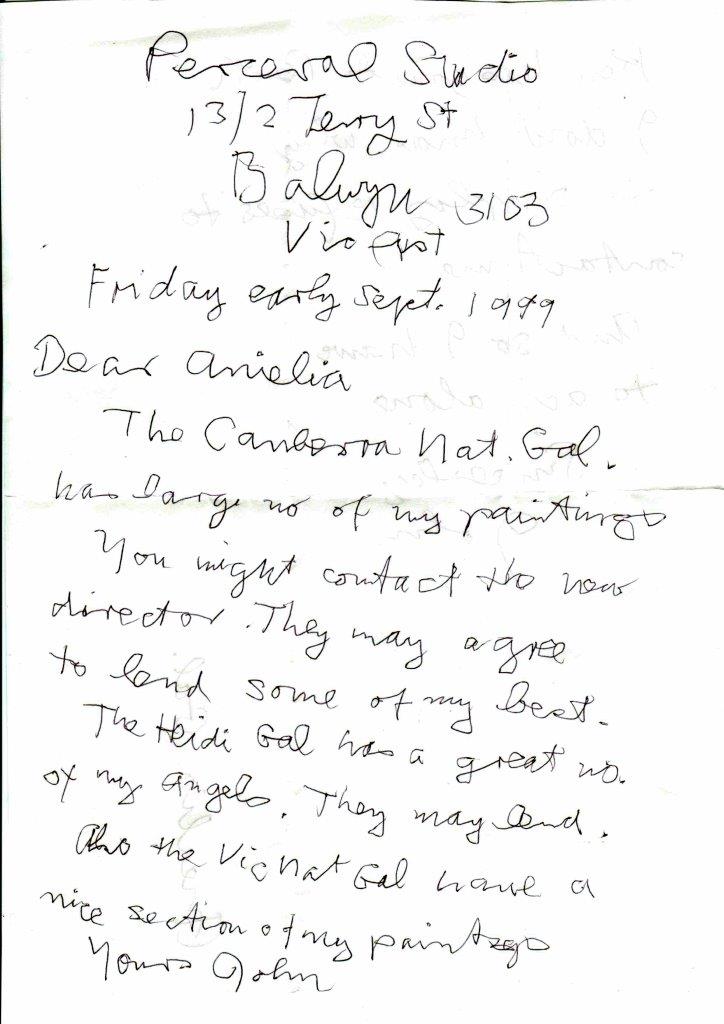 Perceval Studio
13/2 Terry St
Balwyn 3103
Vic
Friday early Sept. 1999
Dear Amelia
The Canberra Nat. Gal.
has large no of my paintings
You might contact the new
director. They may agree
to lend some of my best.
The Heidi Gal has a great no.
of my Angels. They may lend.
Also the Vic Nat Gal have a
nice section of my paintngs
Yours John